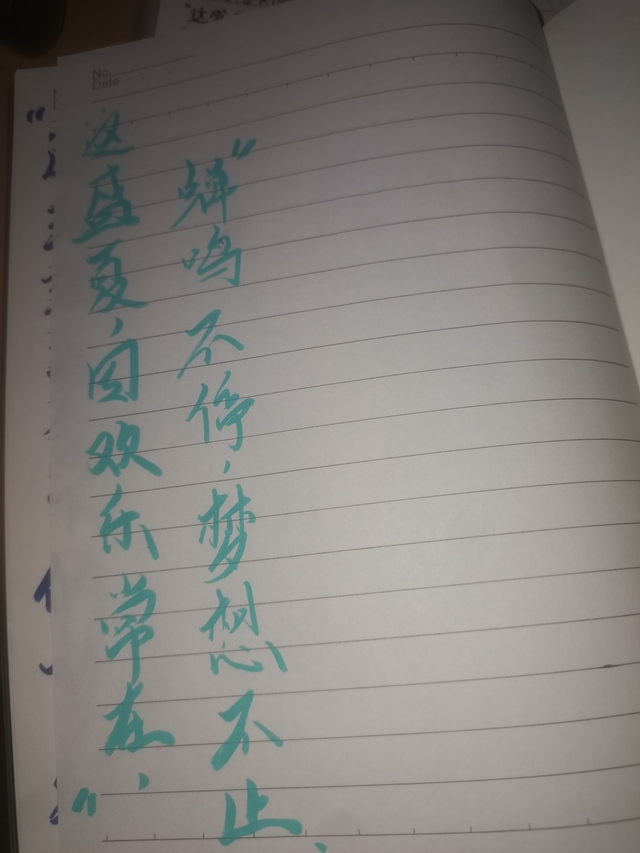 No.
Date
“蝉鸣不停，梦想不止，
这盛夏，因欢乐常在，”